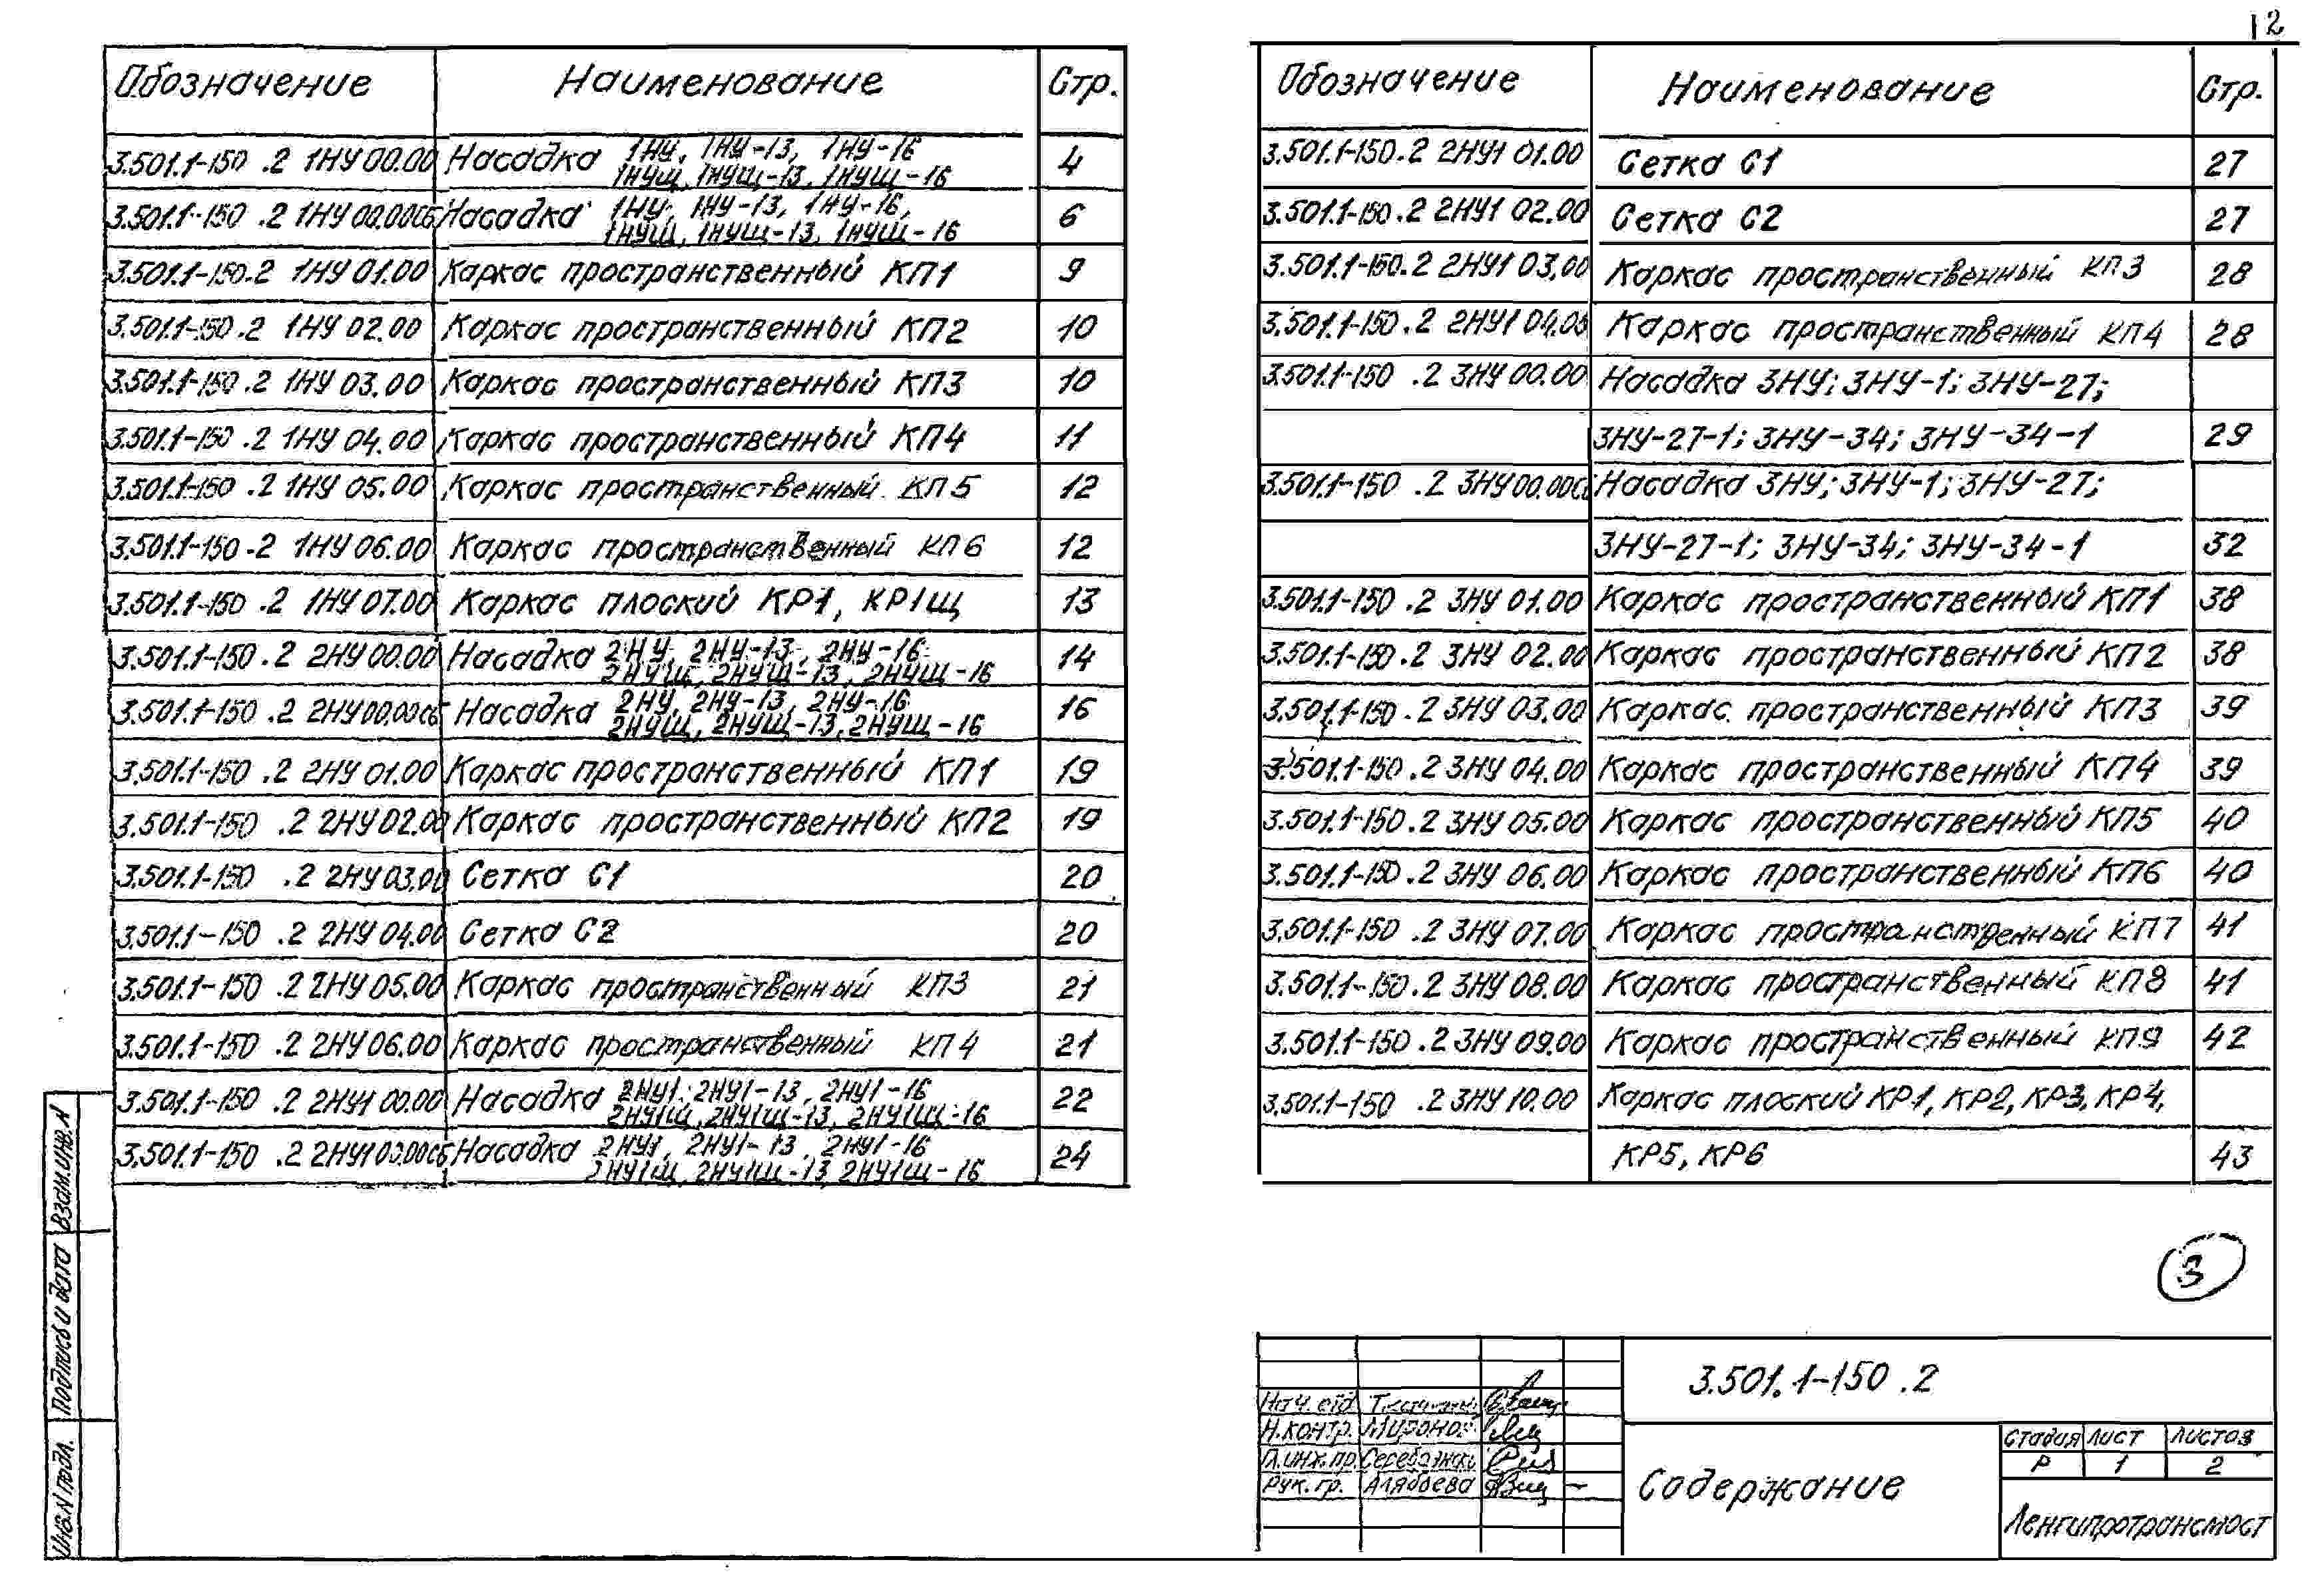 12
Обозначение Наименование Стр.
3.501.1-150 .2 1НУ 00.00 Насадка 1НУ, 1НУ-13, 1НУ-16 4
1НУЩ, 1НУЩ-13, 1НУЩ-16
3.501.1-150 .2 1НУ 00.00СБ Насадка 1НУ, 1НУ-13, 1НУ-16, 6
1НУЩ, 1НУЩ-13, 1НУЩ-16
3.501.1-150.2 1НУ 01.00 Каркас пространственный КП1 9
3.501.1-150.2 1НУ 02.00 Каркас пространственный КП2 10
3.501.1-150.2 1НУ 03.00 Каркас пространственный КП3 10
3.501.1-150 .2 1НУ 04.00 Каркас пространственный КП4 11
3.501.1-150 .2 1НУ 05.00 Каркас пространственный КП5 12
3.501.1-150.2 1НУ 06.00 Каркас пространственный КП6 12
3.501.1-150 .2 1НУ 07.00 Каркас плоский КР1, КР1Щ 13
3.501.1-150.2 2НУ 00.00 Насадка 2НУ, 2НУ-13, 2НУ-16 14
2НУЩ, 2НУЩ-13, 2НУЩ-16
3.501.1-150 .2 2НУ 00.00СБ Насадка 2НУ, 2НУ-13, 2НУ-16 16
2НУЩ, 2НУЩ-13, 2НУЩ-16
3.501.1-150 .2 2НУ 01.00 Каркас пространственный КП1 19
3.501.1-150 .2 2НУ 02.00 Каркас пространственный КП2 19
3.501.1-150 .2 2НУ 03.00 Сетка С1 20
3.501.1-150 .2 2НУ 04.00 Сетка С2 20
3.501.1-150 .2 2НУ 05.00 Каркас пространственный КП3 21
3.501.1-150 .2 2НУ 06.00 Каркас пространственный КП4 21
3.501.1-150 .2 2НУ1 00.00 Насадка 2НУ1, 2НУ1-13, 2НУ1-16 22
2НУ1Щ, 2НУ1Щ-13, 2НУ1Щ-16
3.501.1-150 .2 2НУ1 00.00СБ Насадка 2НУ1, 2НУ1-13, 2НУ1-16 24
2НУ1Щ, 2НУ1Щ-13, 2НУ1Щ-16
Обозначение Наименование Стр.
3.501.1-150.2 2НУ1 01.00 Сетка С1 27
3.501.1-150.2 2НУ1 02.00 Сетка С2 27
3.501.1-150.2 2НУ1 03.00 Каркас пространственный КП3 28
3.501.1-150.2 2НУ1 04.00 Каркас пространственный КП4 28
3.501.1-150 .2 3НУ 00.00 Насадка 3НУ; 3НУ-1; 3НУ-27;
3НУ-27-1; 3НУ-34; 3НУ-34-1 29
3.501.1-150 .2 3НУ 00.00СБ Насадка 3НУ; 3НУ-1; 3НУ-27;
3НУ-27-1; 3НУ-34; 3НУ-34-1 32
3.501.1-150 .2 3НУ 01.00 Каркас пространственный КП1 38
3.501.1-150.2 3НУ 02.00 Каркас пространственный КП2 38
3.501.1-150.2 3НУ 03.00 Каркас пространственный КП3 39
3.501.1-150.2 3НУ 04.00 Каркас пространственный КП4 39
3.501.1-150.2 3НУ 05.00 Каркас пространственный КП5 40
3.501.1-150.2 3НУ 06.00 Каркас пространственный КП6 40
3.501.1-150 .2 3НУ 07.00 Каркас пространственный КП7 41
3.501.1-150.2 3НУ 08.00 Каркас пространственный КП8 41
3.501.1-150.2 3НУ 09.00 Каркас пространственный КП9 42
3.501.1-150 .2 3НУ 10.00 Каркас плоский КР1, КР2, КР3, КР4,
КР5, КР6 43
3
3.501.1-150 .2
Нач. отд.
Н.контр. Миронов
Гл.инж.пр.
Рук. гр. Алябьева
Содержание
Стадия Лист Листов
Р 1 2
Ленгипротрансмост
Взам.инв.N
Подпись и дата
Инв.N подл.